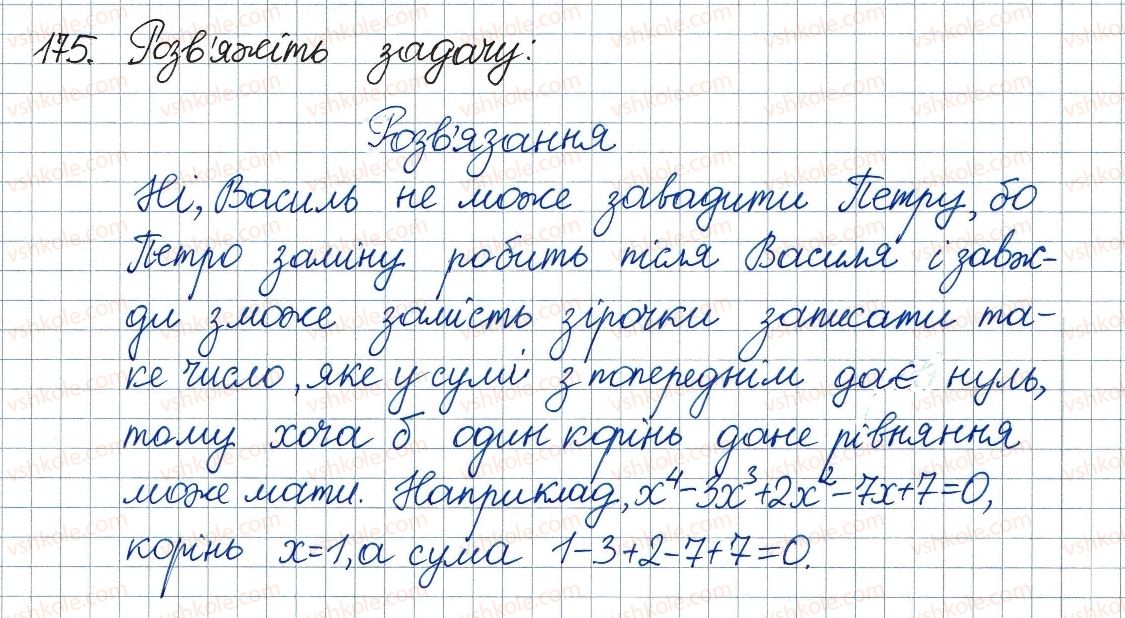 175. Розв'яжіть задачу:
Розв'язання
Ні, Василь не може завадити Петру, бо
Петро заміну робить після Василя і завж-
ди зможе замість зірочки записати та-
ке число, яке у сумі з попереднім дає нуль,
тому хоча б один корінь дане рівняння
може мати. Наприклад, x⁴-3x³+2x²-7x+7=0,
корінь x=1, а сума 1-3+2-7+7=0.